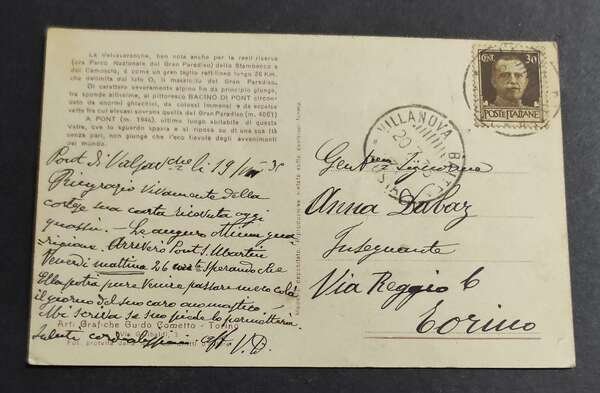 La Valsavaranche, ben nota anche per la reali riserve
(ora Parco Nazionale del Gran Paradiso) dello Stambecco e
del Camoscio, è come un gran taglio rettilineo lungo 26 Km.
che delimita dal lato O. il massiccio del Gran Paradiso.
Di carattere severamente alpino fin da principio giunge,
fra sponde altissime, al pittoresco BACINO DI PONT circondato
da enormi ghiacciai, da colossi immensi e da
vette fra cui elevasi sovrana quella del Gran Paradiso (m. 4061)
A PONT (m. 1946), ultimo luogo abitabile di questa
valle, ove lo sguardo spazia e si riposa su di una sua
senza pari, non giunge che l'eco fievole degli avvenimenti
del mondo.
Pont di Valsavche lì 19/VIII 35
Ringrazio vivamente della
cortese sua carta ricevuta oggi
quassù. Le auguro ottima guarigione.
Arriverò Pont S. Martin
Venerdì mattina 26 sperando che
Ella potrà pure venire passare meco colà
il giorno del suo caro onomastico.
Mi scriva se suo piede lo permetterà.
Saluti cordialissimi aff. V.D.
Arti Grafiche Guido Cometto - Torino
(Via Garibaldi)
VILLANOVA BALTEA
20
AOSTA
CENT. 30
POSTE ITALIANE
Gent.ma Signorina
Anna Dabaz
Insegnante
Via Reggio 6
Torino